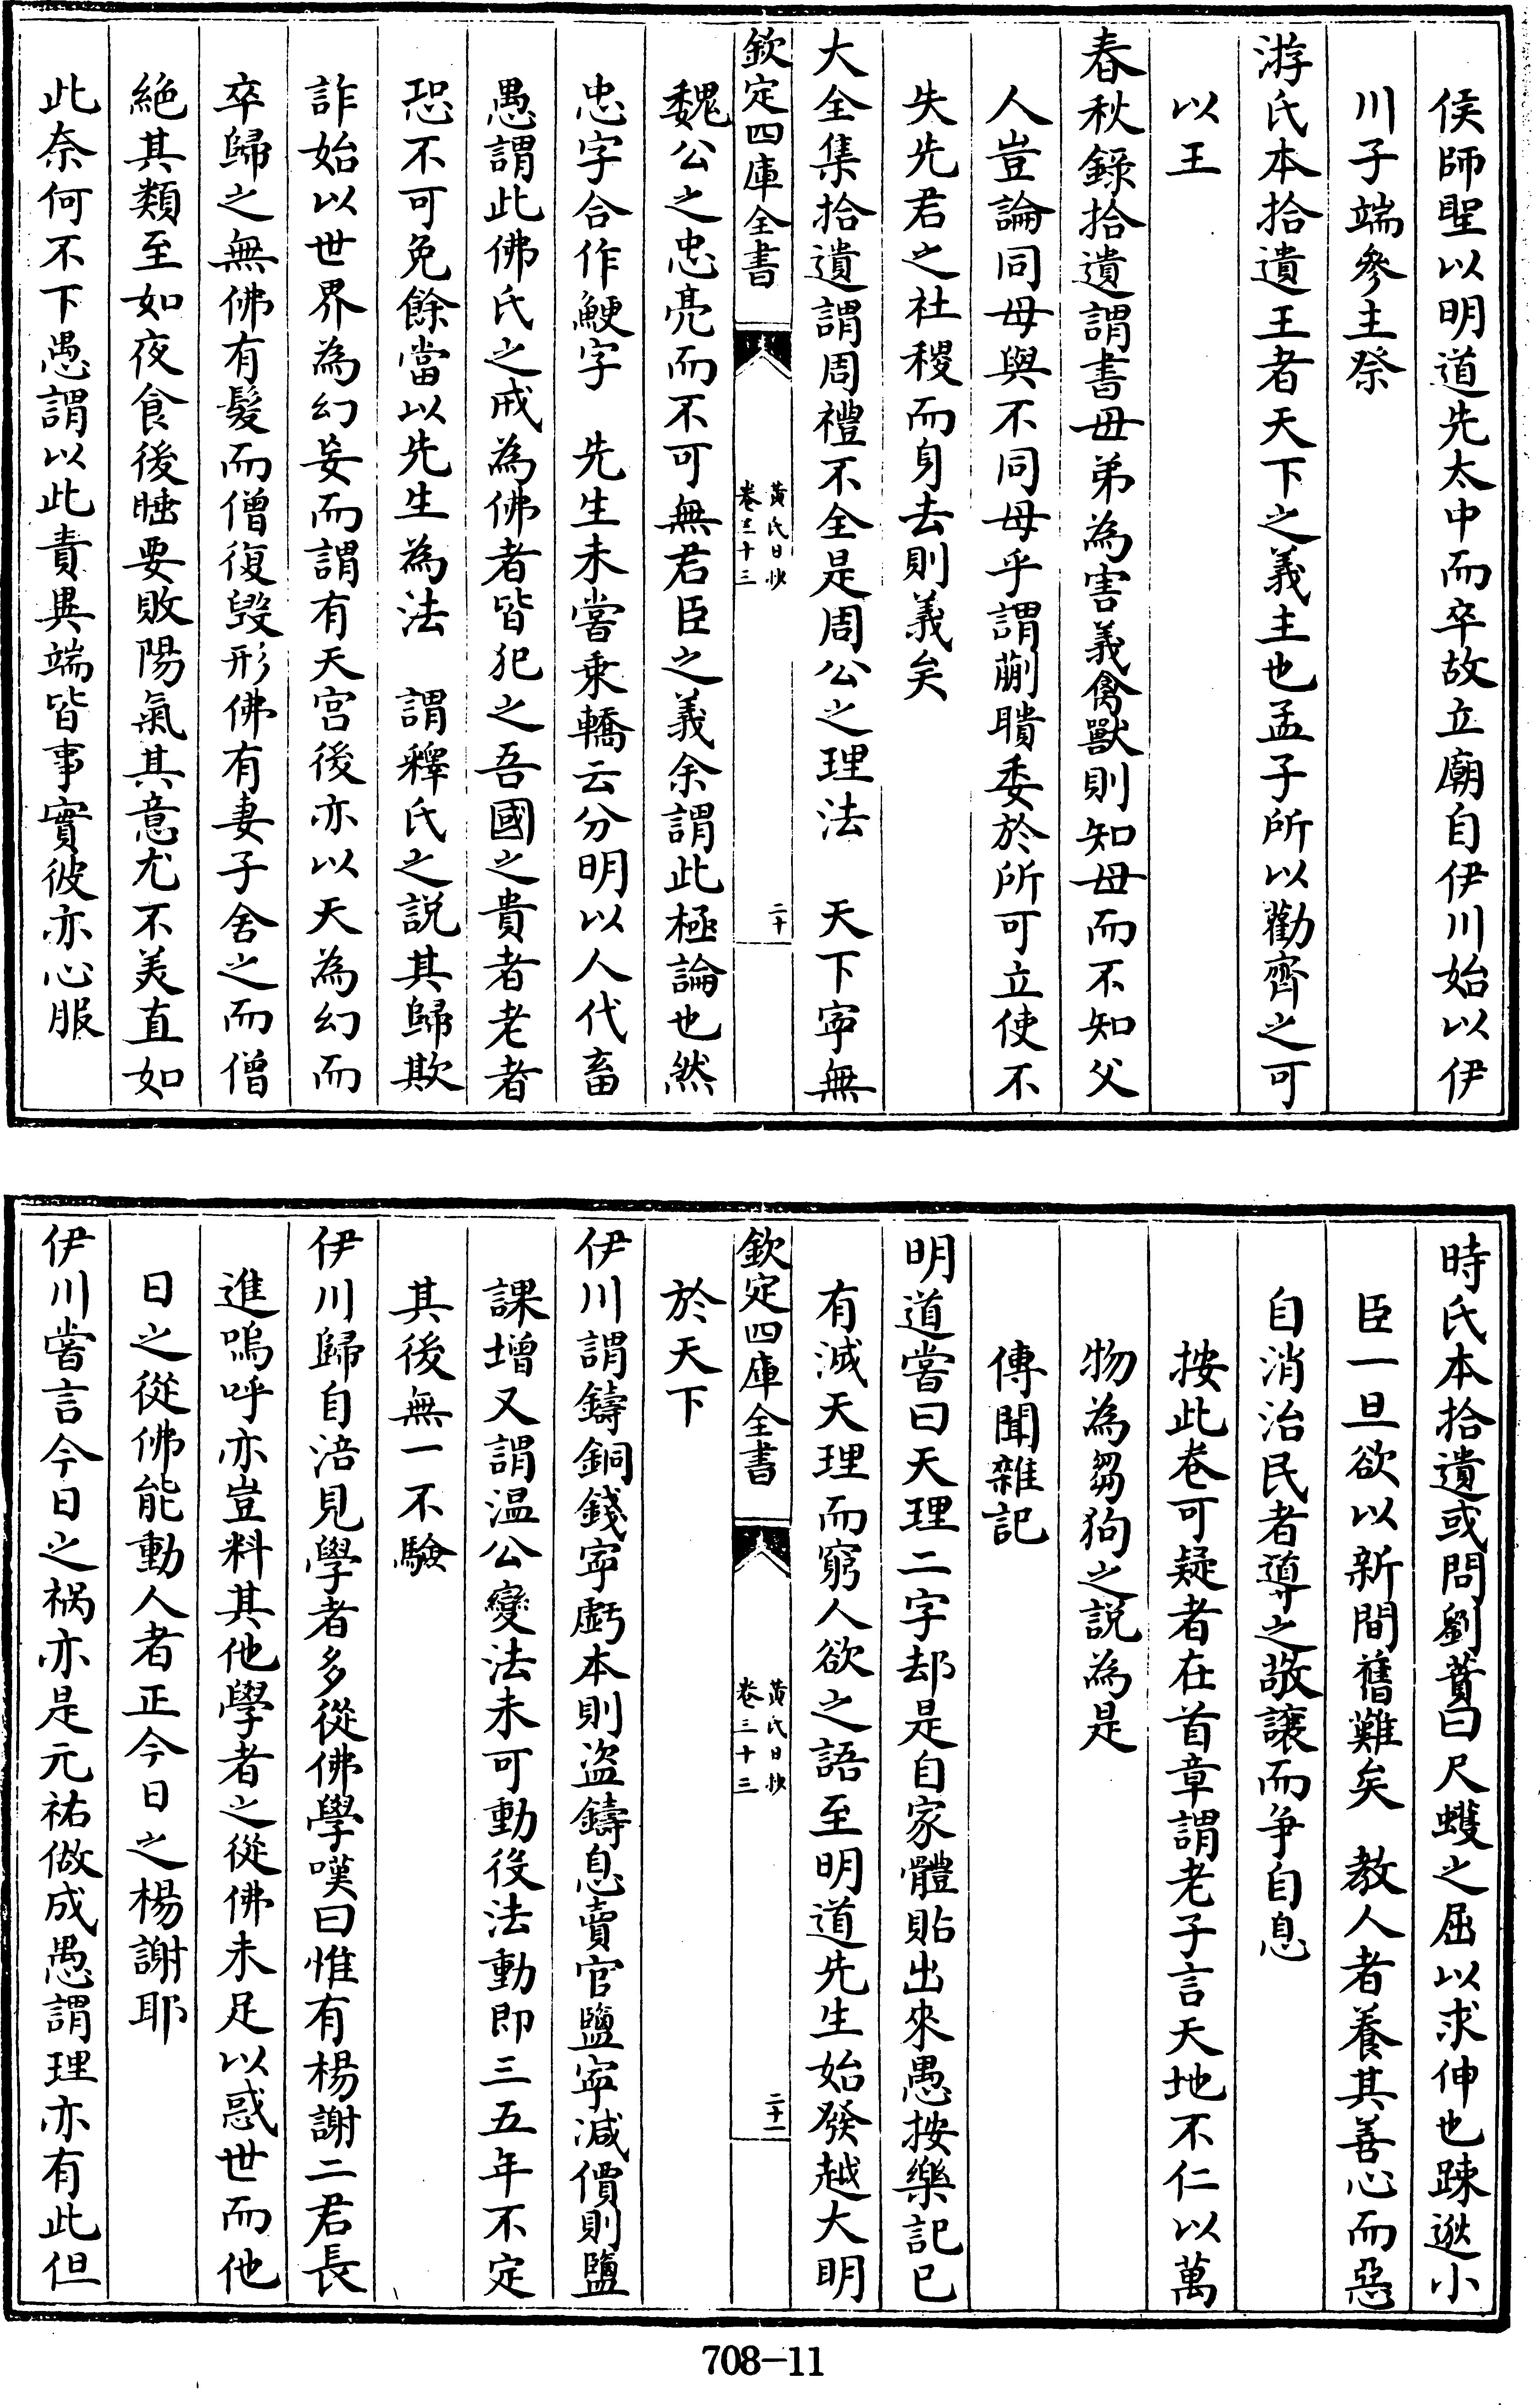 侯師聖以明道先太中而卒故立廟自伊川始以伊
川子端參主祭
游氏本拾遺王者天下之義主也孟子所以勸齊之可
以王
春秋錄拾遺謂書母弟為害義禽獸則知母而不知父
人豈論同母與不同母乎謂蒯聵委於所可立使不
失先君之社稷而身去則義矣
大全集拾遺謂周禮不全是周公之理法　天下寜無
欽定四庫全書
黃氏日抄
卷三十三
二十
魏公之忠亮而不可無君臣之義余謂此極論也然
忠字合作鯁字　先生未嘗乗轎云分明以人代畜
愚謂此佛氏之戒為佛者皆犯之吾國之貴者老者
恐不可免餘當以先生為法　謂釋氏之説其歸欺
詐始以世界為幻妄而謂有天宫後亦以天為幻而
卒歸之無佛有髮而僧復毁形佛有妻子舍之而僧
絶其類至如夜食後睡要敗陽氣其意尤不美直如
此奈何不下愚謂以此責異端皆事實彼亦心服
時氏本拾遺或問劉蕡曰尺蠖之屈以求伸也踈逖小
臣一旦欲以新間舊難矣　教人者養其善心而惡
自消治民者導之敬讓而争自息
按此卷可疑者在首章謂老子言天地不仁以萬
物為芻狗之説為是
傳聞雜記
明道嘗曰天理二字却是自家體貼出來愚按樂記已
有滅天理而窮人欲之語至明道先生始發越大明
欽定四庫全書
黃氏日抄
卷三十三
二十一
於天下
伊川謂鑄銅錢寜虧本則盗鑄息賣官鹽寜減價則鹽
課增又謂温公變法未可動役法動即三五年不定
其後無一不驗
伊川歸自涪見學者多從佛學嘆曰惟有楊謝二君長
進嗚呼亦豈料其他學者之從佛未足以惑世而他
日之從佛能動人者正今日之楊謝耶
伊川嘗言今日之禍亦是元祐做成愚謂理亦有此但
708-11